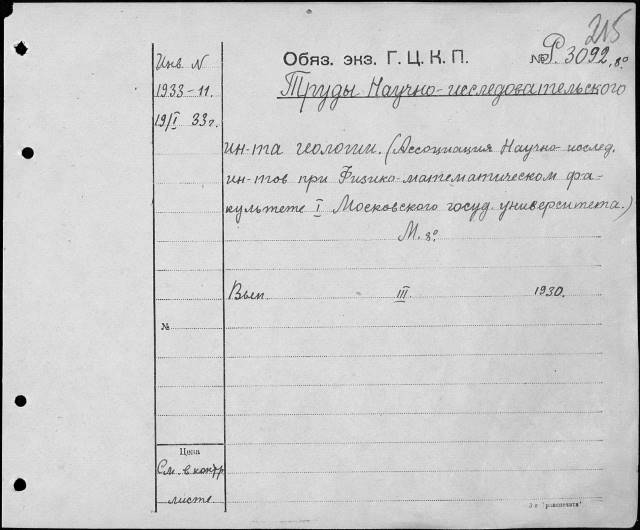 215
Обяз. экз. Г. Ц. К. П.
№ Р. 3092, 8º
Инв. N
1933-11.
19/I 33 г.
Труды Научно-исследовательского
ин-та геологии. (Ассоциация Научно-исслед.
ин-тов при Физико-математическом фа-
культете I Московского госуд. университета.)
М. 8º
Вып III 1930.
№
Цена
См. в контр
листе